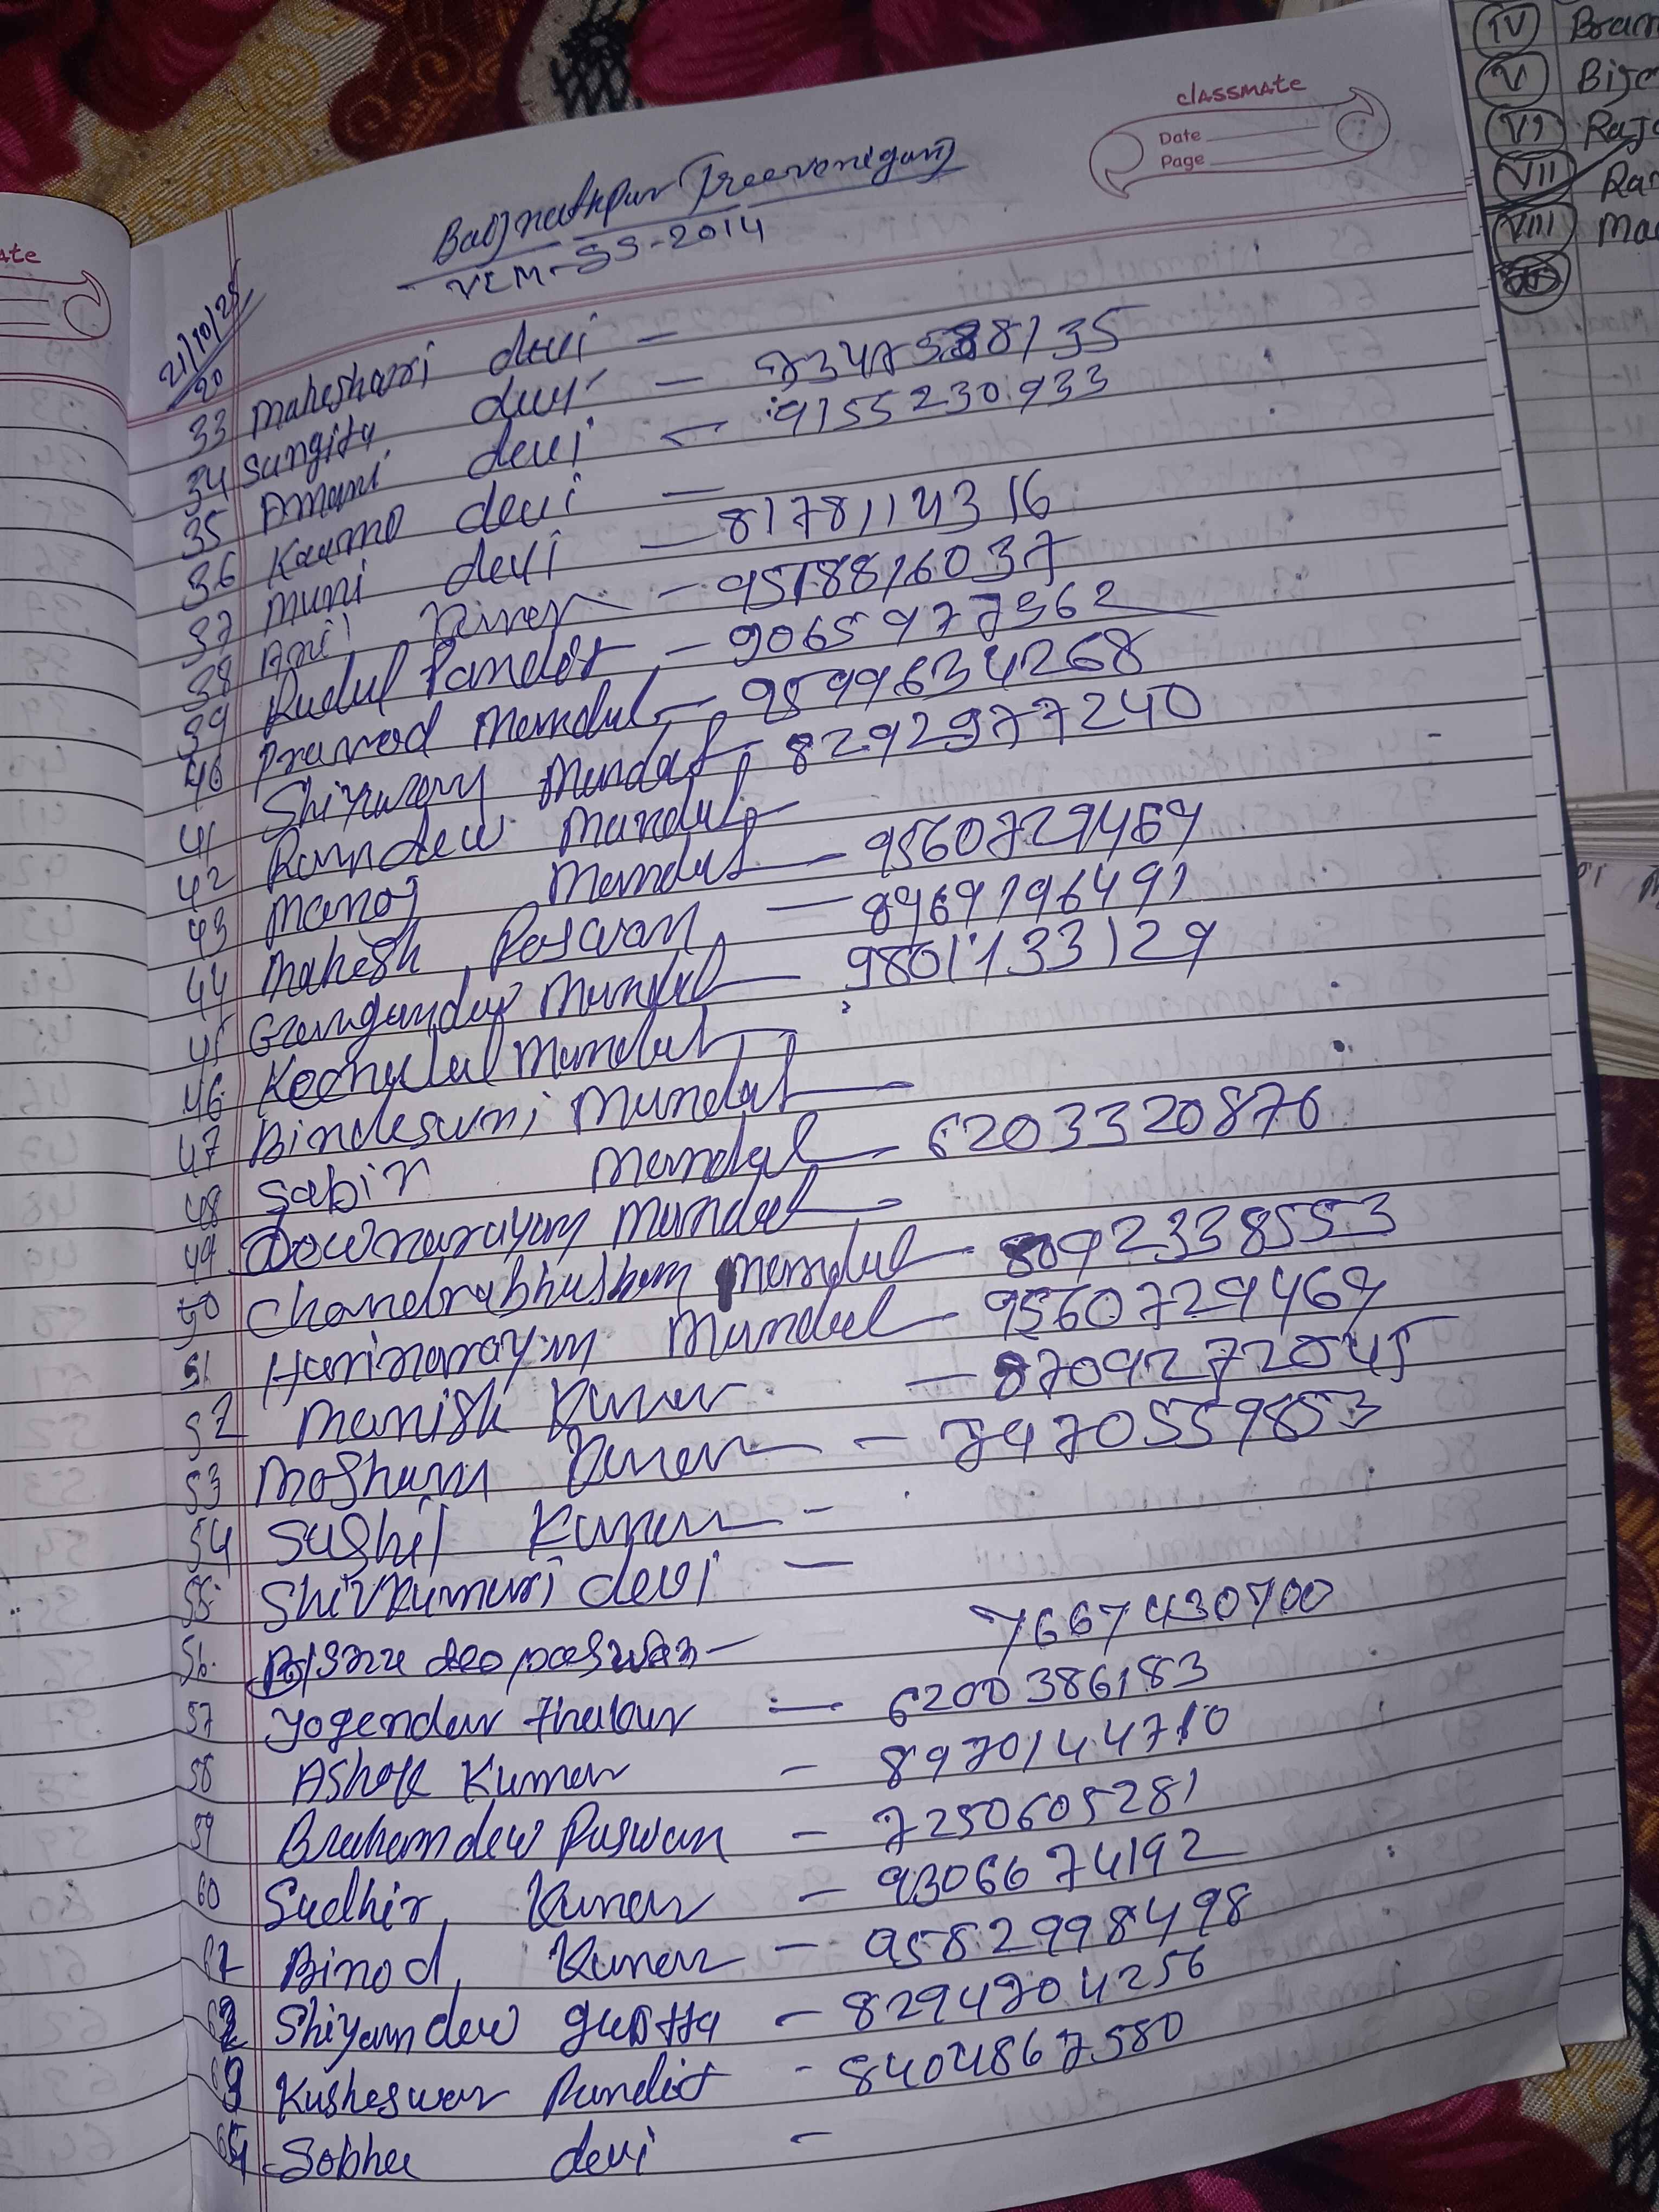 classmate
Date
Page
Baijnathpur (Treeveniganj)
VLM-SS-2014
21/10/25
20
33 Maheshwari devi -
34 Sungita devi - 7347588135
35 Amani devi - 9155230933
36 Kaarmo devi -
37 Muni devi - 8178114316
38 Anil Kumar - 9518816037
39 Rudul Pandit - 9065977362
40 Pramod Mandal - 9599634268
41 Shivnarayn Mandal 8292977240
42 Ramdew Mandal
43 Manoj Mandal - 9560729469
44 Mahesh Paswan - 8969196491
45 Gangandew Mandal - 9801133129
46 Kechulal Mandal
47 Bindeswri Mandal
48 Sabir Mandal - 6203320876
49 Downarayan Mandal -
50 Chandrabhushan Mandal - 8092338553
51 Harinarayan Mandal - 9560729469
52 Manish Kumar - 8709272045
53 Mosham Kumar - 7470559853
54 Sushil Kumar -
55 Shivkumari devi -
56. deo paswan - 7667430700
57 Yogendar Thakur - 6200386183
58 Ashok Kumar - 8970144710
59 Brahamdew Paswan - 7250605281
60 Sudhir Kumar - 9306674192
61 Binod Kumar - 9582998498
62 Shiyamdew Gupta - 8294704256
63 Kusheswar Pandit - 8404867580
64 Sobha devi -
IV
V
VI
VII
VIII